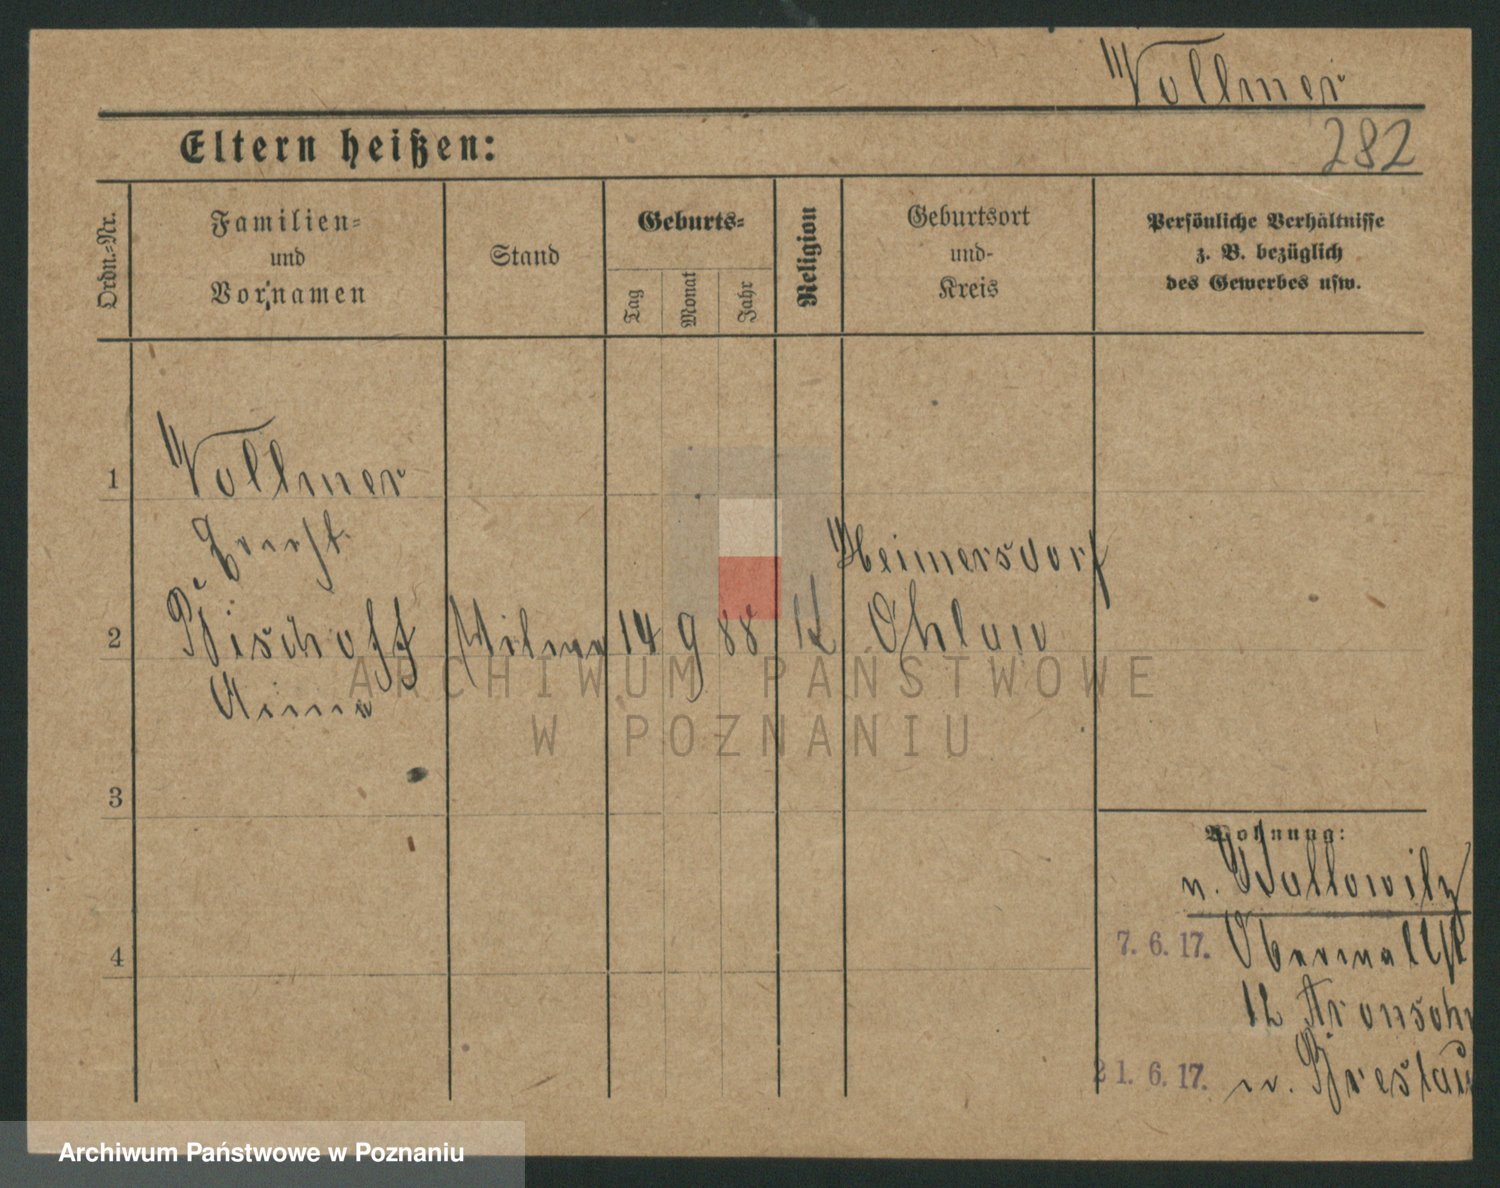 Vollmer
282
Eltern heißen:
Ordn.-Nr.
Familien-
und
Vornamen
Stand
Geburts-
Tag
Monat
Jahr
Religion
Geburtsort
und-
Kreis
Persönliche Verhältnisse
z. B. bezüglich
des Gewerbes usw.
1
Vollmer
Ernst
Heimersdorf
2
Bischoff
14 9 88
Ohlau
Anna
3
Wohnung:
n.
4
7. 6. 17.
12
21. 6. 17. n. Breslau
ARCHIWUM PAŃSTWOWE
W POZNANIU
Archiwum Państwowe w Poznaniu